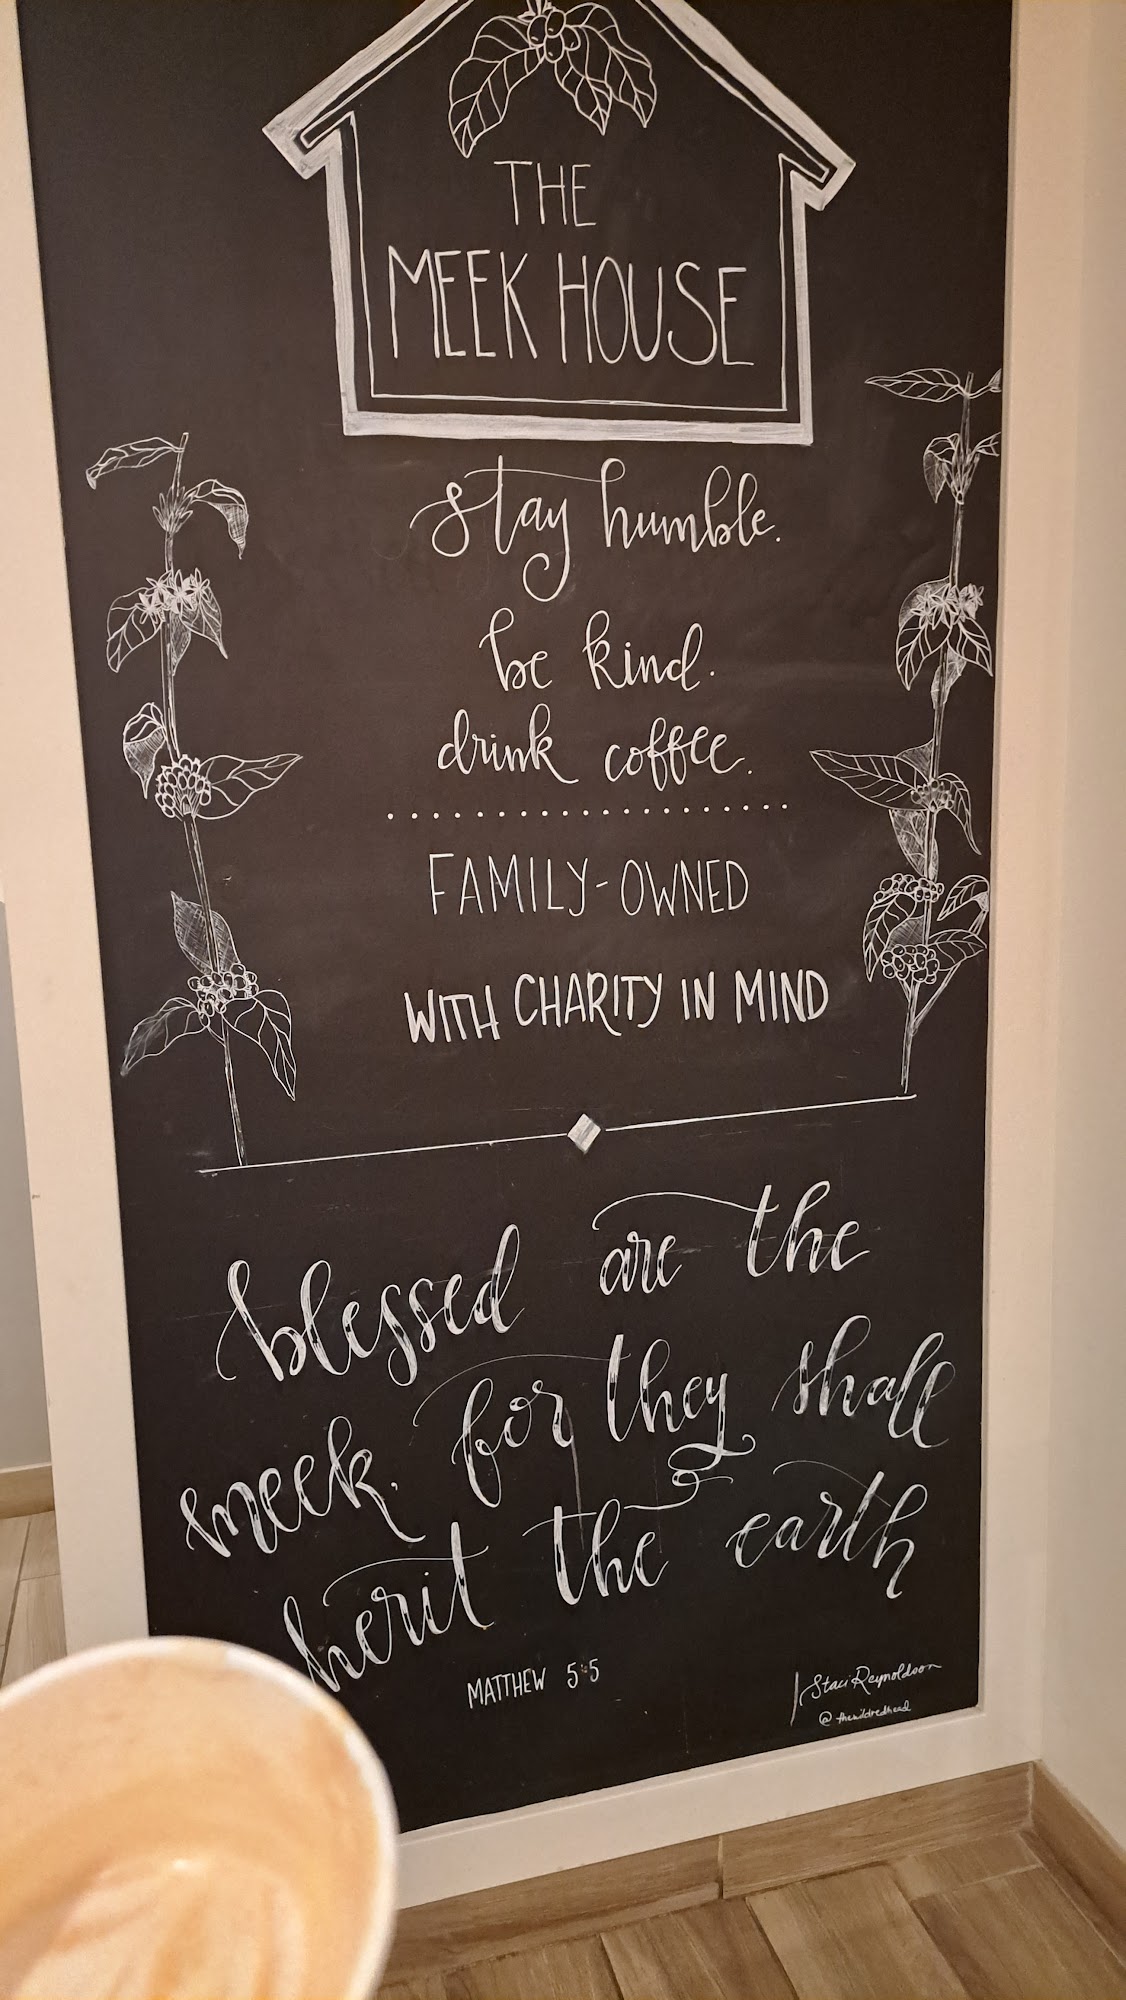 THE
MEEK HOUSE
stay humble.
be kind.
drink coffee.
FAMILY-OWNED
WITH CHARITY IN MIND
blessed are the
meek. for they shall
herit the earth
MATTHEW 5:5
Staci Reynoldson
@thewildredhead